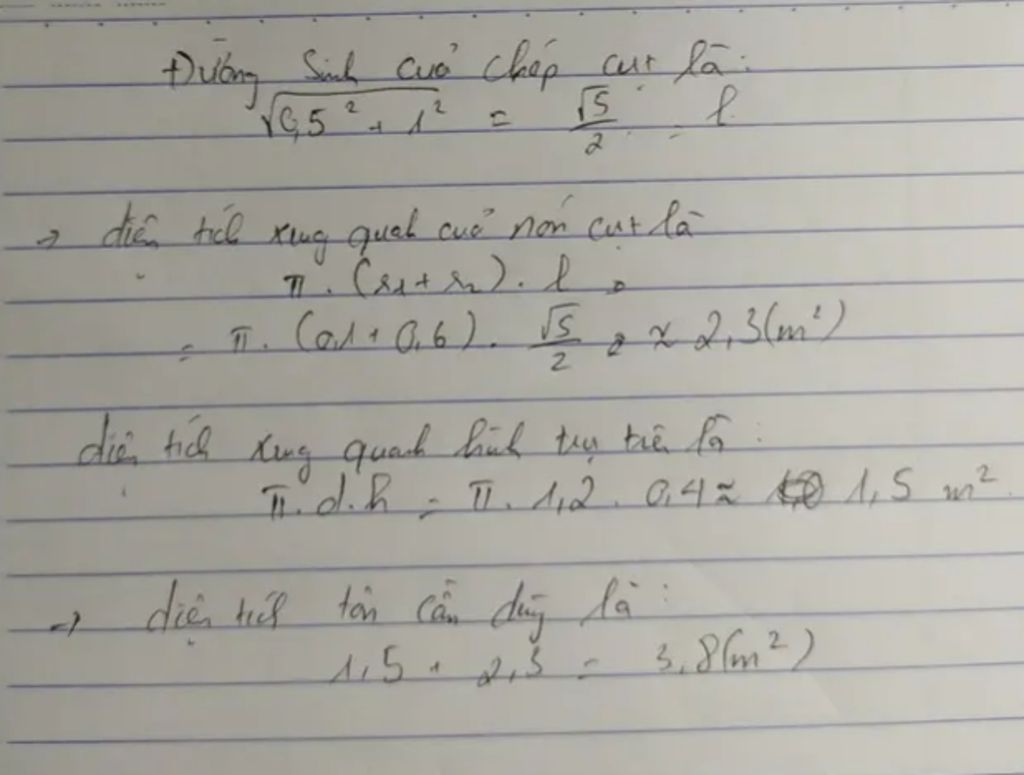 Đường sinh của chóp cụt là:
√0,5² + 1² = √5/2 = l
→ diện tích xung quanh của nón cụt là
π . (r₁ + r₂) . l =
= π . (0,1 + 0,6) . √5/2 ≈ 2,3(m²)
diện tích xung quanh hình trụ trên là:
π . d . h = π . 1,2 . 0,4 ≈ 1,5 m²
→ diện tích tôn cần dùng là:
1,5 + 2,3 = 3,8(m²)